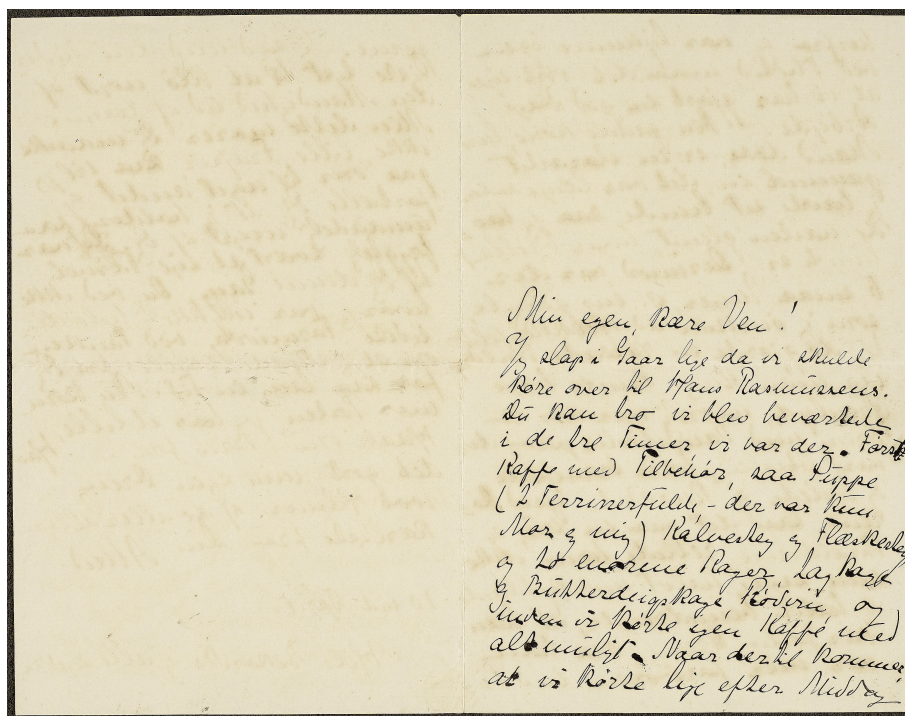 Min egen, kære Ven!
Jeg slap i Gaar lige da vi skulde
køre over til Hans Rasmussens.
Du kan tro vi blev beværtede
i de tre Timer vi var der. Først
Kaffe med Tilbehør, saa Suppe
(2 Terrinerfulde - der var kun
Mor og mig) Kalvesteg og Flæskesteg
og to enorme Kager, Lagkage
og Butterdeigskage Rødvin og
inden vi kørte igen Kaffe med
alt muligt. Naar dertil kommer
at vi kørte lige efter Middag